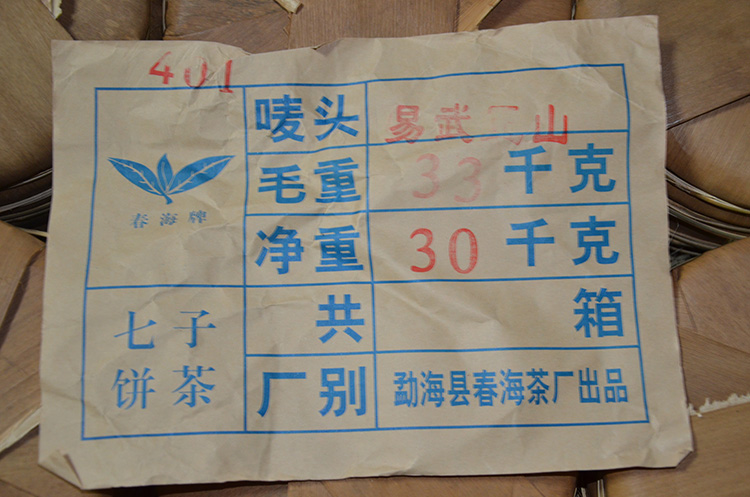 401
唛头 易武 山
毛重 33 千克
春海牌
净重 30 千克
七子
饼茶
共 箱
厂别 勐海县春海茶厂出品